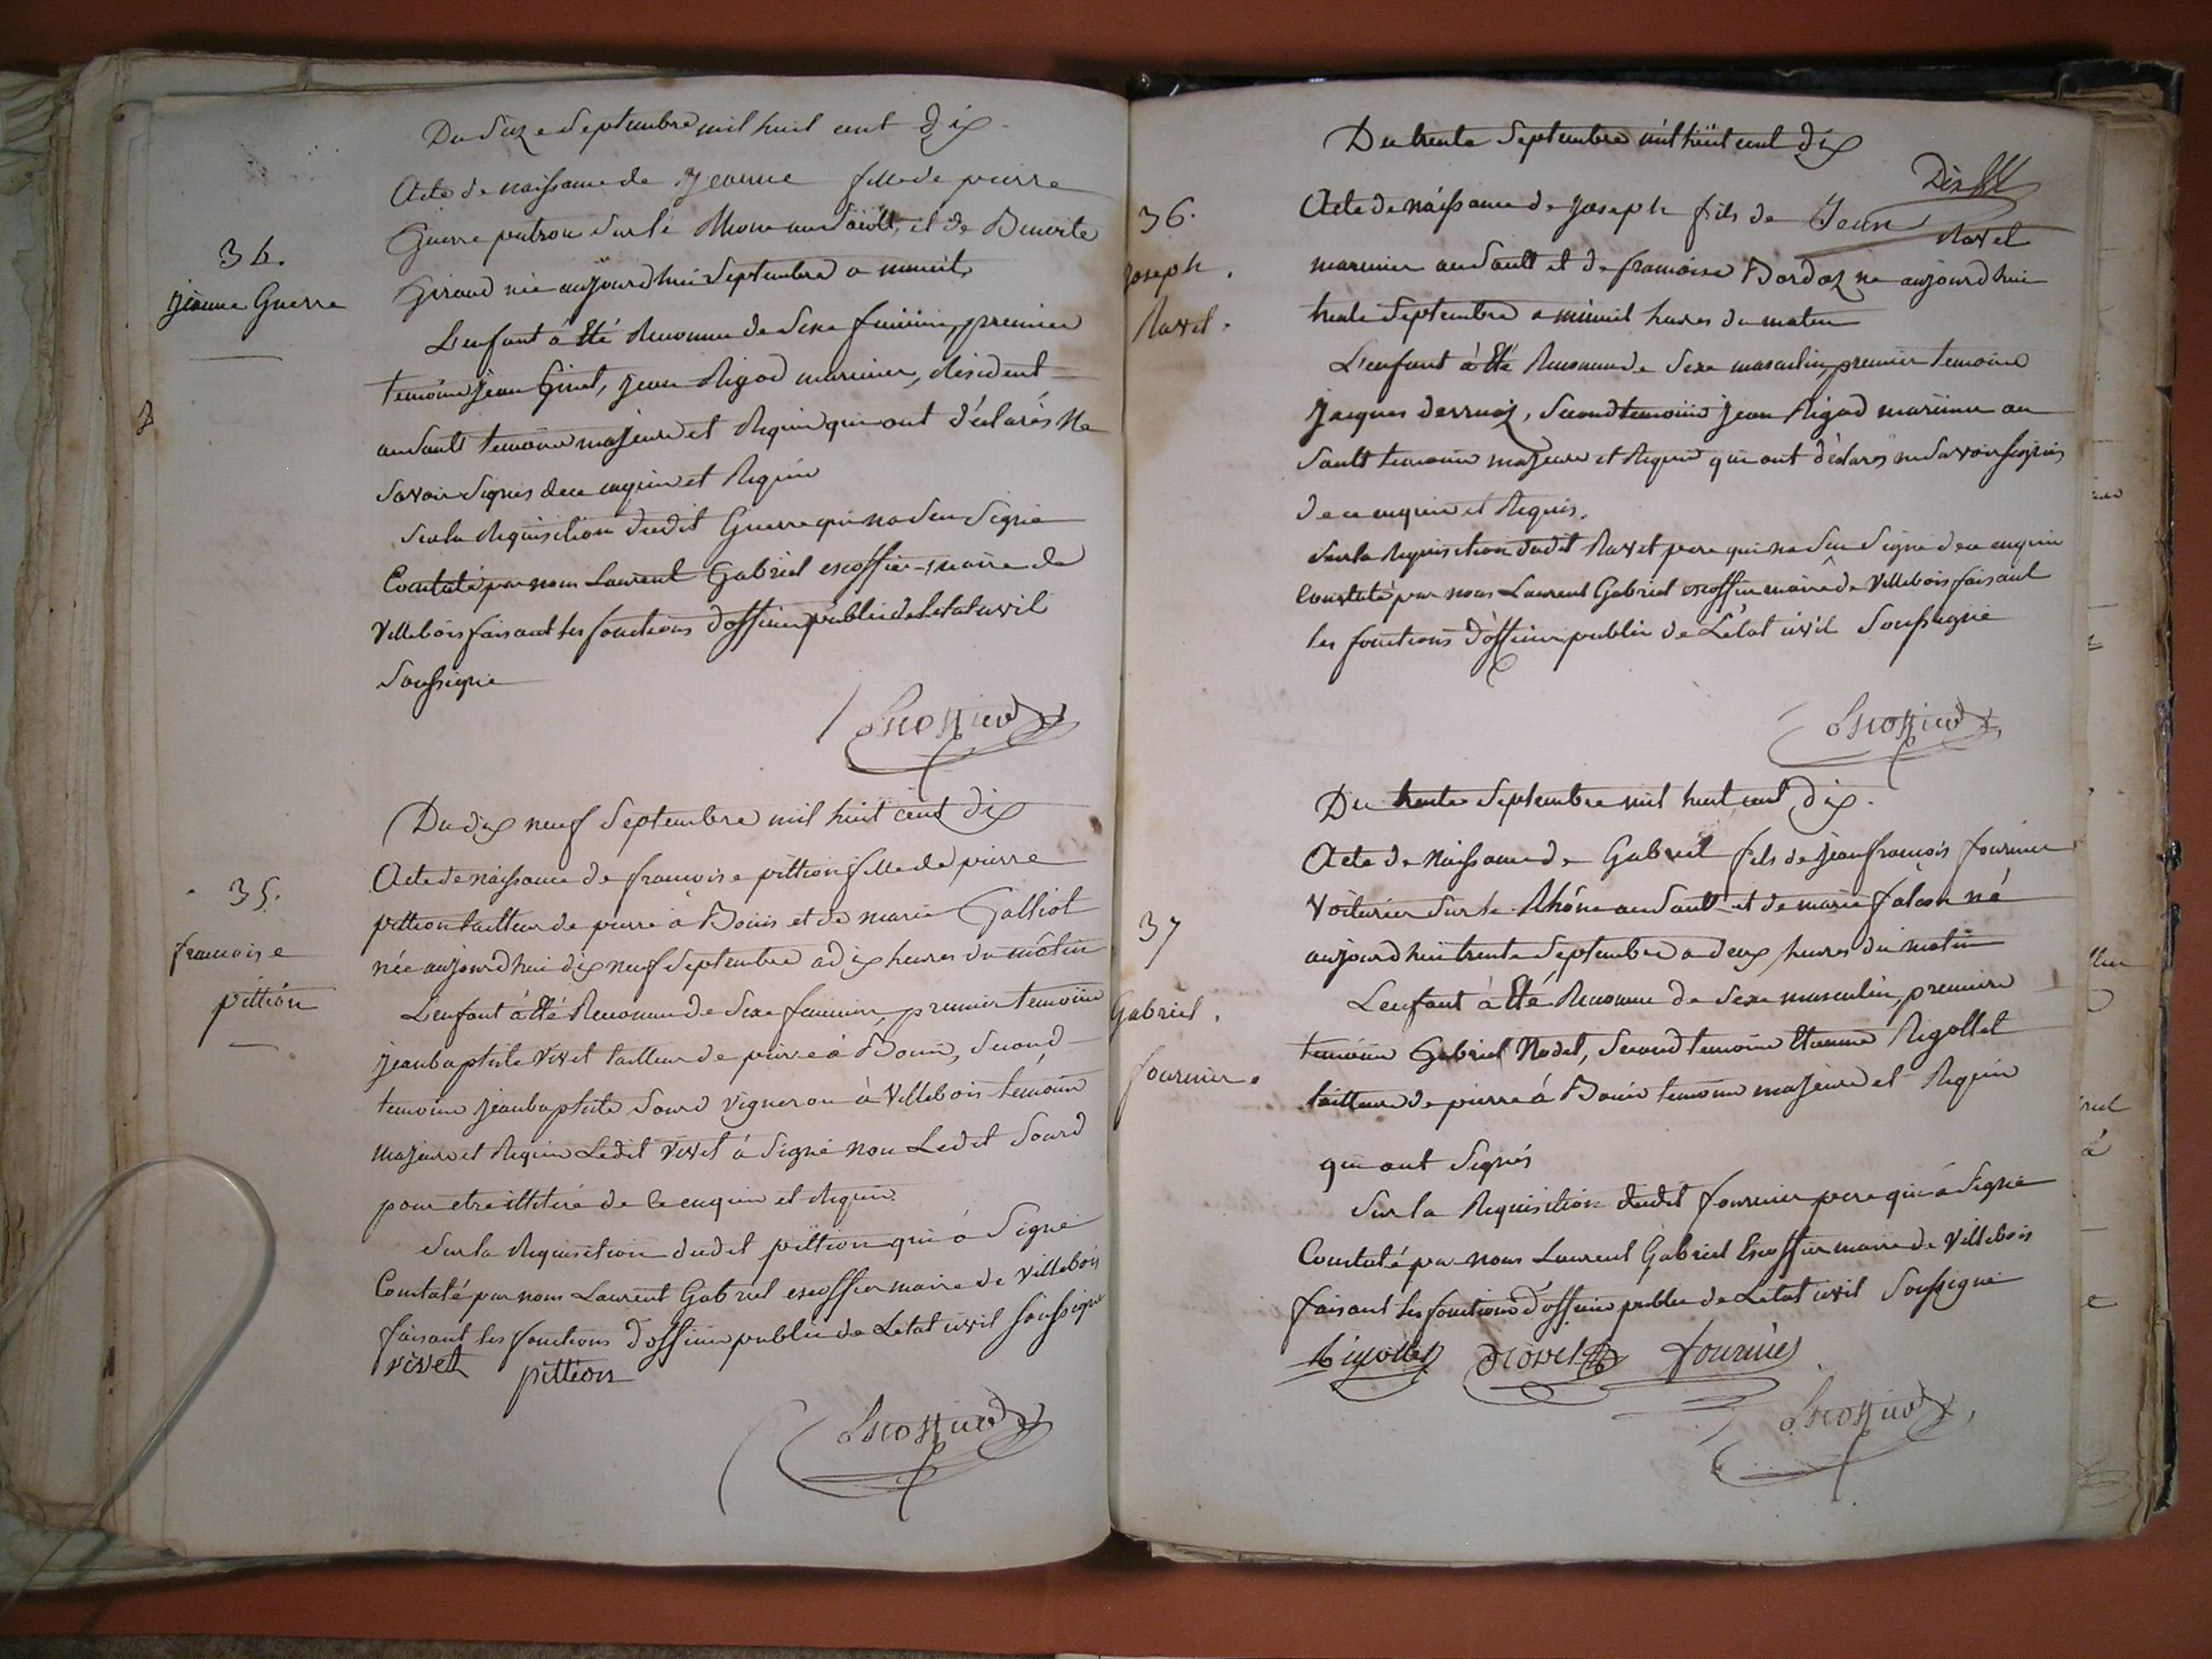 Du Seize Septembre mil huit cent dix
Acte de naissance de Jeanne fille de pierre
Guerre patron Sur le Rhone au Sault, et de Benoite
Giraud née aujourd'hui Septembre a minuit
34.
jeanne Guerre
L'enfant à été Reconnu de Sexe feminin, premier
temoins jean Ginet, jean Rigod marinier, résident
au Sault temoins majeurs et Requis qui ont déclarés Ne
Savoir Signés de ce enquis et Requis
Sur la Requisition dudit Guerre qui na Seu Signé
Constaté par nous Laurent Gabriel escoffier maire de
Villebois faisant les fonctions d'officier public de l'etat civil
Soussigné
Escoffier
Du dix neuf Septembre mil huit cent dix
35.
francoise
pittion
Acte de naissance de francoise pittion fille de pierre
pittion tailleur de pierre à Bouis et de marie Galliot
née aujourd'hui dix neuf Septembre a dix heures du matin
L'enfant à été Reconnu de Sexe feminin, premier temoins
jean baptiste Vivet tailleur de pierre à Bouis, Second
temoins jean baptiste Sourd Vigneron à Villebois temoins
majeurs et Requis Ledit Vivet à Signé non Ledit Sourd
pour etre illitéré de ce enquis et Requis
Sur la Requisition dudit pittion qui à Signé
Constaté par nous Laurent Gabriel escoffier maire de Villebois
faisant les fonctions d'officier public de Letat civil Soussigné
vivet pittion
Escoffier
Du trente Septembre mil huit cent dix
36.
Joseph
Ravet.
Acte de naissance de Joseph fils de Jean Ravet
marinier au Sault et de francoise Bordaz né aujourd'hui
trente Septembre a minuit heures du matin
L'enfant à été Reconnu de Sexe masculin, premier temoins
Jacques derruaz, Second temoins jean Rigod marinier au
Sault temoins majeurs et Requis qui ont déclarés ne Savoir Signés
de ce enquis et Requis.
Sur la Requisition dudit Ravet pere qui na Seu Signé de ce enquis
Constaté par nous Laurent Gabriel escoffier maire de Villebois faisant
les fonctions d'officier public de L'etat civil Soussigné
Escoffier
Du trente Septembre mil huit cent dix.
37
Gabriel.
fournier.
Acte de Naissance de Gabriel fils de jean françois fournier
Voiturier Sur le Rhône au Sault et de marie falcoz né
aujourd'hui trente Septembre a deux heures du matin
L'enfant à été Reconnu de Sexe masculin, premiere
temoins Gabriel Nodet, Second temoins Etienne Rigollet
tailleurs de pierre á Bouis temoins majeurs et Requis
qui ont Signés
Sur la Requisition dudit fournier pere qui à Signé
Constaté par nous Laurent Gabriel Escoffier maire de Villebois
faisant les fonctions d'officier public de Letat civil Soussigné
Rigollet Fournier
Escoffier